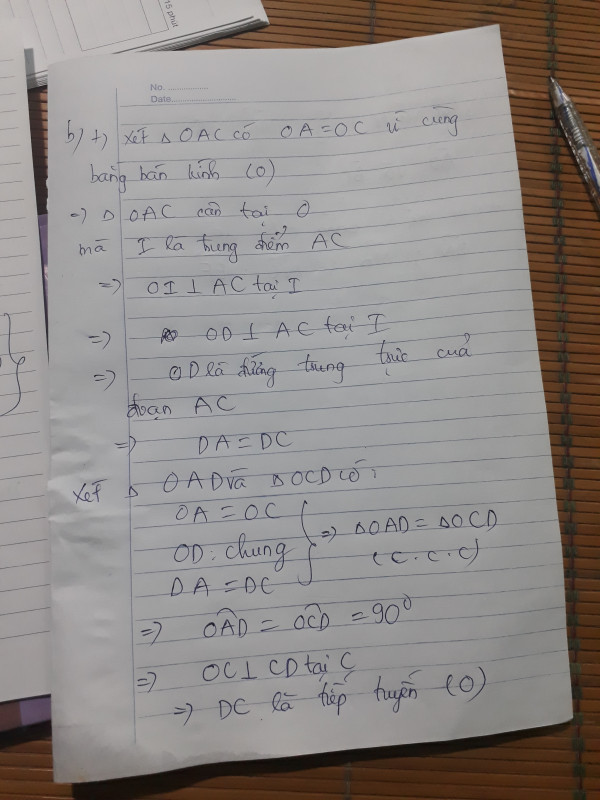 15 phút
No. ....................
Date ...........................
b) +) Xét Δ OAC có OA = OC vì cùng
bằng bán kính (O)
=> Δ OAC cân tại O
mà I là trung điểm AC
=> OI ⊥ AC tại I
=> OD ⊥ AC tại I
=> OD là đường trung trực của
đoạn AC
=> DA = DC
Xét Δ OAD và Δ OCD có:
OA = OC
OD: chung } => ΔOAD = ΔOCD
DA = DC (c.c.c)
=> OAD̂ = OCD̂ = 90⁰
=> OC ⊥ CD tại C
=> DC là tiếp tuyến (O)